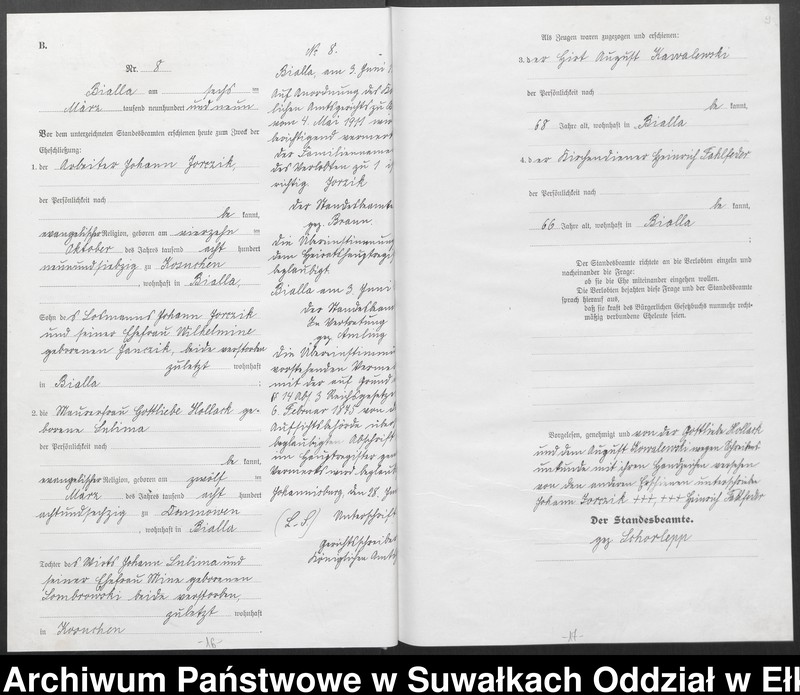 B.
Nr. 8
Bialla am sechs ten
März tausend neunhundert und neun
Vor dem unterzeichneten Standesbeamten erschienen heute zum Zweck der
Eheschließung:
1. der Arbeiter Johann Jorczik,
der Persönlichkeit nach
be kannt,
evangelischer Religion, geboren am vierzehn ten
Oktober des Jahres tausend acht hundert
neunundsiebzig zu Kosuchen
, wohnhaft in Bialla,
Sohn des Losmanns Johann Jorczik
und seiner Ehefrau Wilhelmine
geborenen Janczik, beide verstorben
zuletzt wohnhaft
in Bialla ;
2. die Maurerfrau Gottliebe Kollack ge-
borene Sulima
der Persönlichkeit nach
be kannt,
evangelischer Religion, geboren am zwölf ten
März des Jahres tausend acht hundert
achtundsechzig zu
, wohnhaft in Bialla
Tochter des Wirts Johann Sulima und
seiner Ehefrau Mine geborenen
Sombrowski beide verstorben,
zuletzt wohnhaft
in Kosuchen .
-16-
No 8.
Bialla, am 3. Juni
Auf Anordnung des Kö
lichen Amtsgerichts zu
vom 4. Mai 1911 wird
berichtigend vermerkt
der Familienname
des Verlobten zu 1
richtig Jorzik
Der Standesbeamte
gez. Braun.
Die Übereinstimmung
dem Heiratshauptregi
beglaubigt
Bialla am 3. Juni
Der Standesbeam
In Vertretung
gez. Amling
Die Übereinstimmu
vorstehenden Verme
mit der auf Grund
§ 14 Abs 3 Reichsgesetze
6. Februar 1875 von
Aufsichtsbehörde über
beglaubigten Abschrift
im Hauptregister
Vermerks wird beglaub
Johannisburg, den 28. Ju
(L.S) Unterschrift
Gerichtsschreiber
Königlichen Amts
Als Zeugen waren zugezogen und erschienen:
3. der Hirt August Kowalewski
der Persönlichkeit nach
be kannt,
68 Jahre alt, wohnhaft in Bialla
4. der Kirchendiener Heinrich Fahlfeder
der Persönlichkeit nach
be kannt,
66 Jahre alt, wohnhaft in Bialla
;
Der Standesbeamte richtete an die Verlobten einzeln und
nacheinander die Frage:
ob sie die Ehe miteinander eingehen wollen.
Die Verlobten bejahten diese Frage und der Standesbeamte
sprach hierauf aus,
daß sie kraft des Bürgerlichen Gesetzbuchs nunmehr recht-
mäßig verbundene Eheleute seien.
Vorgelesen, genehmigt und von der Gottliebe Kollack
und dem August Kowalewski wegen Schreibens
unkunde mit ihren Handzeichen versehen
von den anderen Personen unterschrieben
Johann Jorczik +++, +++ Heinrich Fahlfeder
Der Standesbeamte.
gez. Schorlepp
-17-
Archiwum Państwowe w Suwałkach Oddział w Ełk